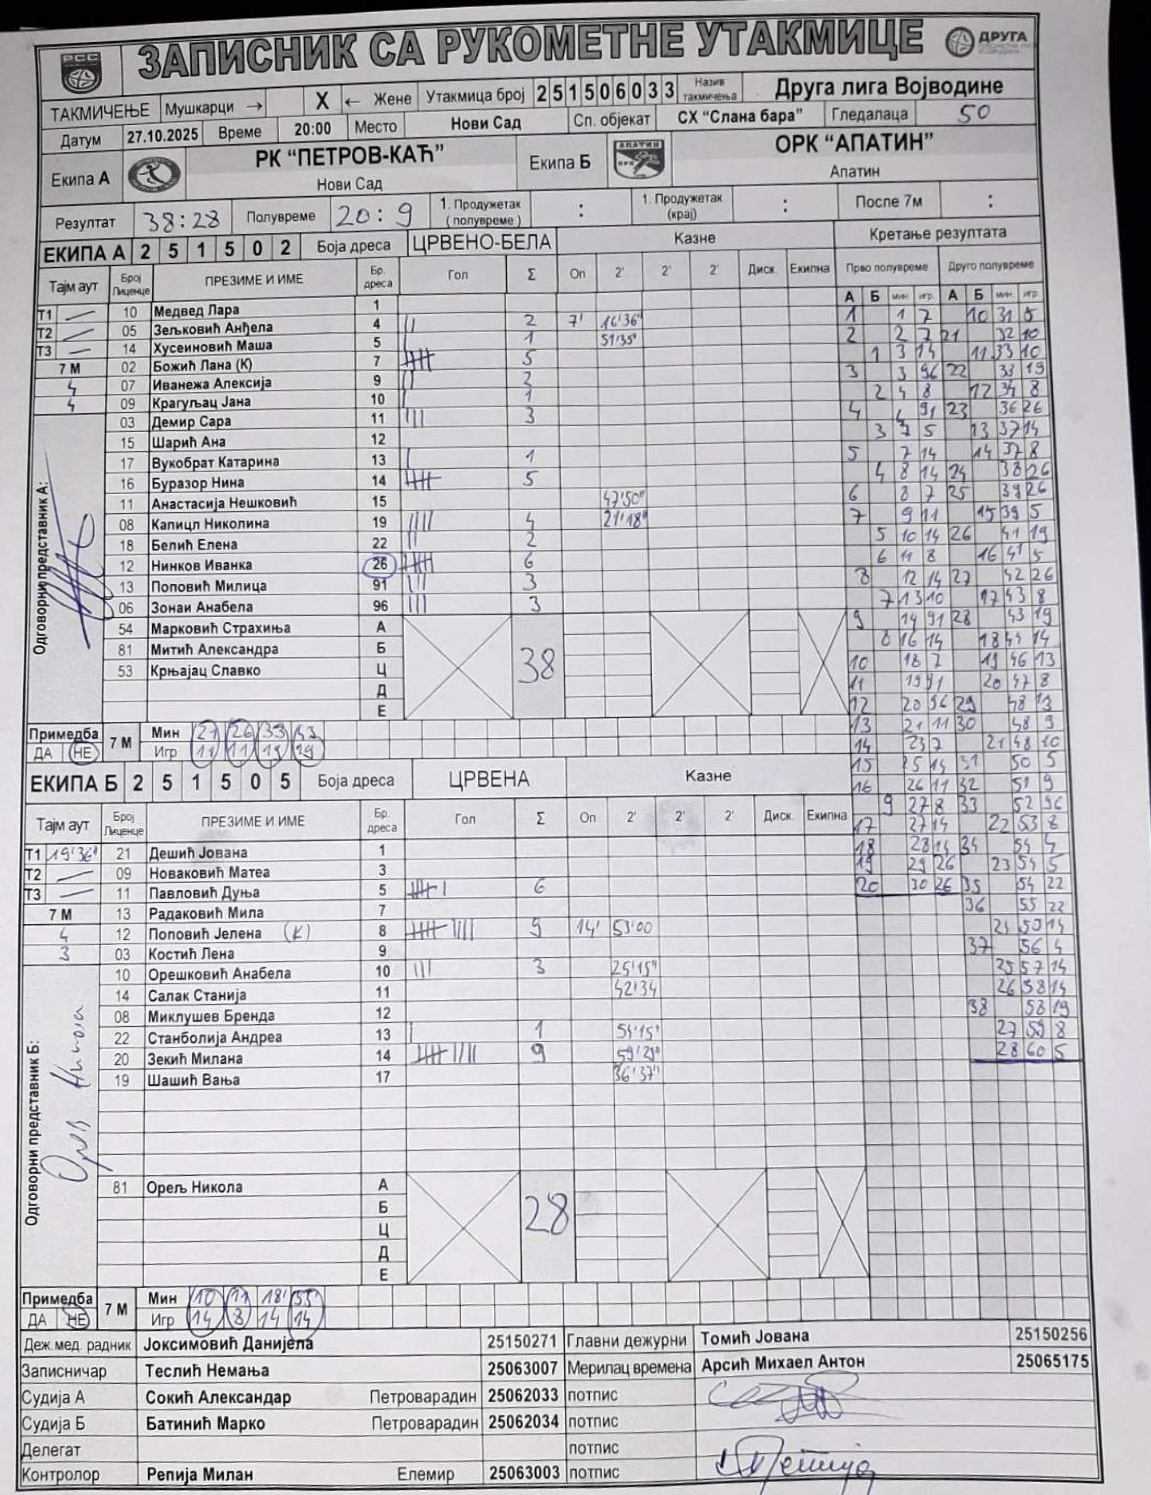 ЗАПИСНИК СА РУКОМЕТНЕ УТАКМИЦЕ
РСС
ДРУГА
ТАКМИЧЕЊЕ Мушкарци → X ← Жене Утакмица број 2 5 1 5 0 6 0 3 3 Назив такмичења Друга лига Војводине
Датум 27.10.2025 Време 20:00 Место Нови Сад Сп. објекат СХ "Слана бара" Гледалаца 50
Екипа А РК "ПЕТРОВ-КАЋ" Нови Сад Екипа Б ОРК "АПАТИН" Апатин
Резултат 38:28 Полувреме 20:9 1. Продужетак (полувреме) : 1. Продужетак (крај) : После 7м :
ЕКИПА А 2 5 1 5 0 2 Боја дреса ЦРВЕНО-БЕЛА Казне Кретање резултата
Тајм аут Број Лиценце ПРЕЗИМЕ И ИМЕ Бр. дреса Гол Σ Оп 2' 2' 2' Диск. Екипна Прво полувреме Друго полувреме
А Б мин. игр. А Б мин. игр.
Т1 — 10 Медвед Лара 1
Т2 — 05 Зељковић Анђела 4 || 2 7' 16'36"
Т3 — 14 Хусеиновић Маша 5 | 1 51'35"
7 М 02 Божић Лана (К) 7 5
4 07 Иванежа Алексија 9 || 2
4 09 Крагуљац Јана 10 | 1
03 Демир Сара 11 ||| 3
15 Шарић Ана 12
17 Вукобрат Катарина 13 | 1
16 Буразор Нина 14 5
11 Анастасија Нешковић 15 47'50"
08 Капицл Николина 19 |||| 4 21'18"
18 Белић Елена 22 || 2
12 Нинков Иванка 26 6
13 Поповић Милица 91 ||| 3
06 Зонаи Анабела 96 ||| 3
54 Марковић Страхиња А
81 Митић Александра Б 38
53 Крњајац Славко Ц
Д
Е
Одговорни представник А:
1 1 7 10 31 5
2 2 7 21 32 10
1 3 14 11 33 10
3 3 96 22 33 19
2 4 8 12 34 8
4 4 91 23 36 26
3 7 5 13 37 14
5 7 14 14 37 8
4 8 14 24 38 26
6 8 7 25 39 26
7 9 11 15 39 5
5 10 14 26 41 19
6 11 8 16 41 5
8 12 14 27 42 26
7 13 10 17 43 8
9 14 91 28 43 19
8 16 14 18 44 14
10 18 7 19 46 13
11 19 91 20 47 8
12 20 96 29 48 13
13 21 11 30 48 9
14 23 7 21 48 10
15 25 14 31 50 5
16 26 11 32 51 9
9 27 8 33 52 96
17 27 14 22 53 8
18 28 14 34 54 4
19 29 26 23 54 5
20 30 26 35 54 22
36 55 22
24 55 14
37 56 4
25 57 14
26 58 14
38 58 19
27 59 8
28 60 5
Примедба ДА НЕ 7 М Мин 21 26 33 43
Игр 11 11 19 19
ЕКИПА Б 2 5 1 5 0 5 Боја дреса ЦРВЕНА Казне
Тајм аут Број Лиценце ПРЕЗИМЕ И ИМЕ Бр. дреса Гол Σ Оп 2' 2' 2' Диск. Екипна
Т1 19'36" 21 Дешић Јована 1
Т2 — 09 Новаковић Матеа 3
Т3 — 11 Павловић Дуња 5 6
7 М 13 Радаковић Мила 7
4 12 Поповић Јелена (К) 8 9 14' 53'00
3 03 Костић Лена 9
10 Орешковић Анабела 10 ||| 3 25'15"
14 Салак Станија 11 42'34
08 Миклушев Бренда 12
22 Станболија Андреа 13 | 1 54'15"
20 Зекић Милана 14 9 59'29"
19 Шашић Вања 17 36'37"
81 Орељ Никола А
Б 28
Ц
Д
Е
Одговорни представник Б:
Примедба ДА НЕ 7 М Мин 10 11 18' 55'
Игр 14 8 14 14
Деж.мед. радник Јоксимовић Данијела 25150271 Главни дежурни Томић Јована 25150256
Записничар Теслић Немања 25063007 Мерилац времена Арсић Михаел Антон 25065175
Судија А Сокић Александар Петроварадин 25062033 потпис
Судија Б Батинић Марко Петроварадин 25062034 потпис
Делегат потпис
Контролор Репија Милан Елемир 25063003 потпис